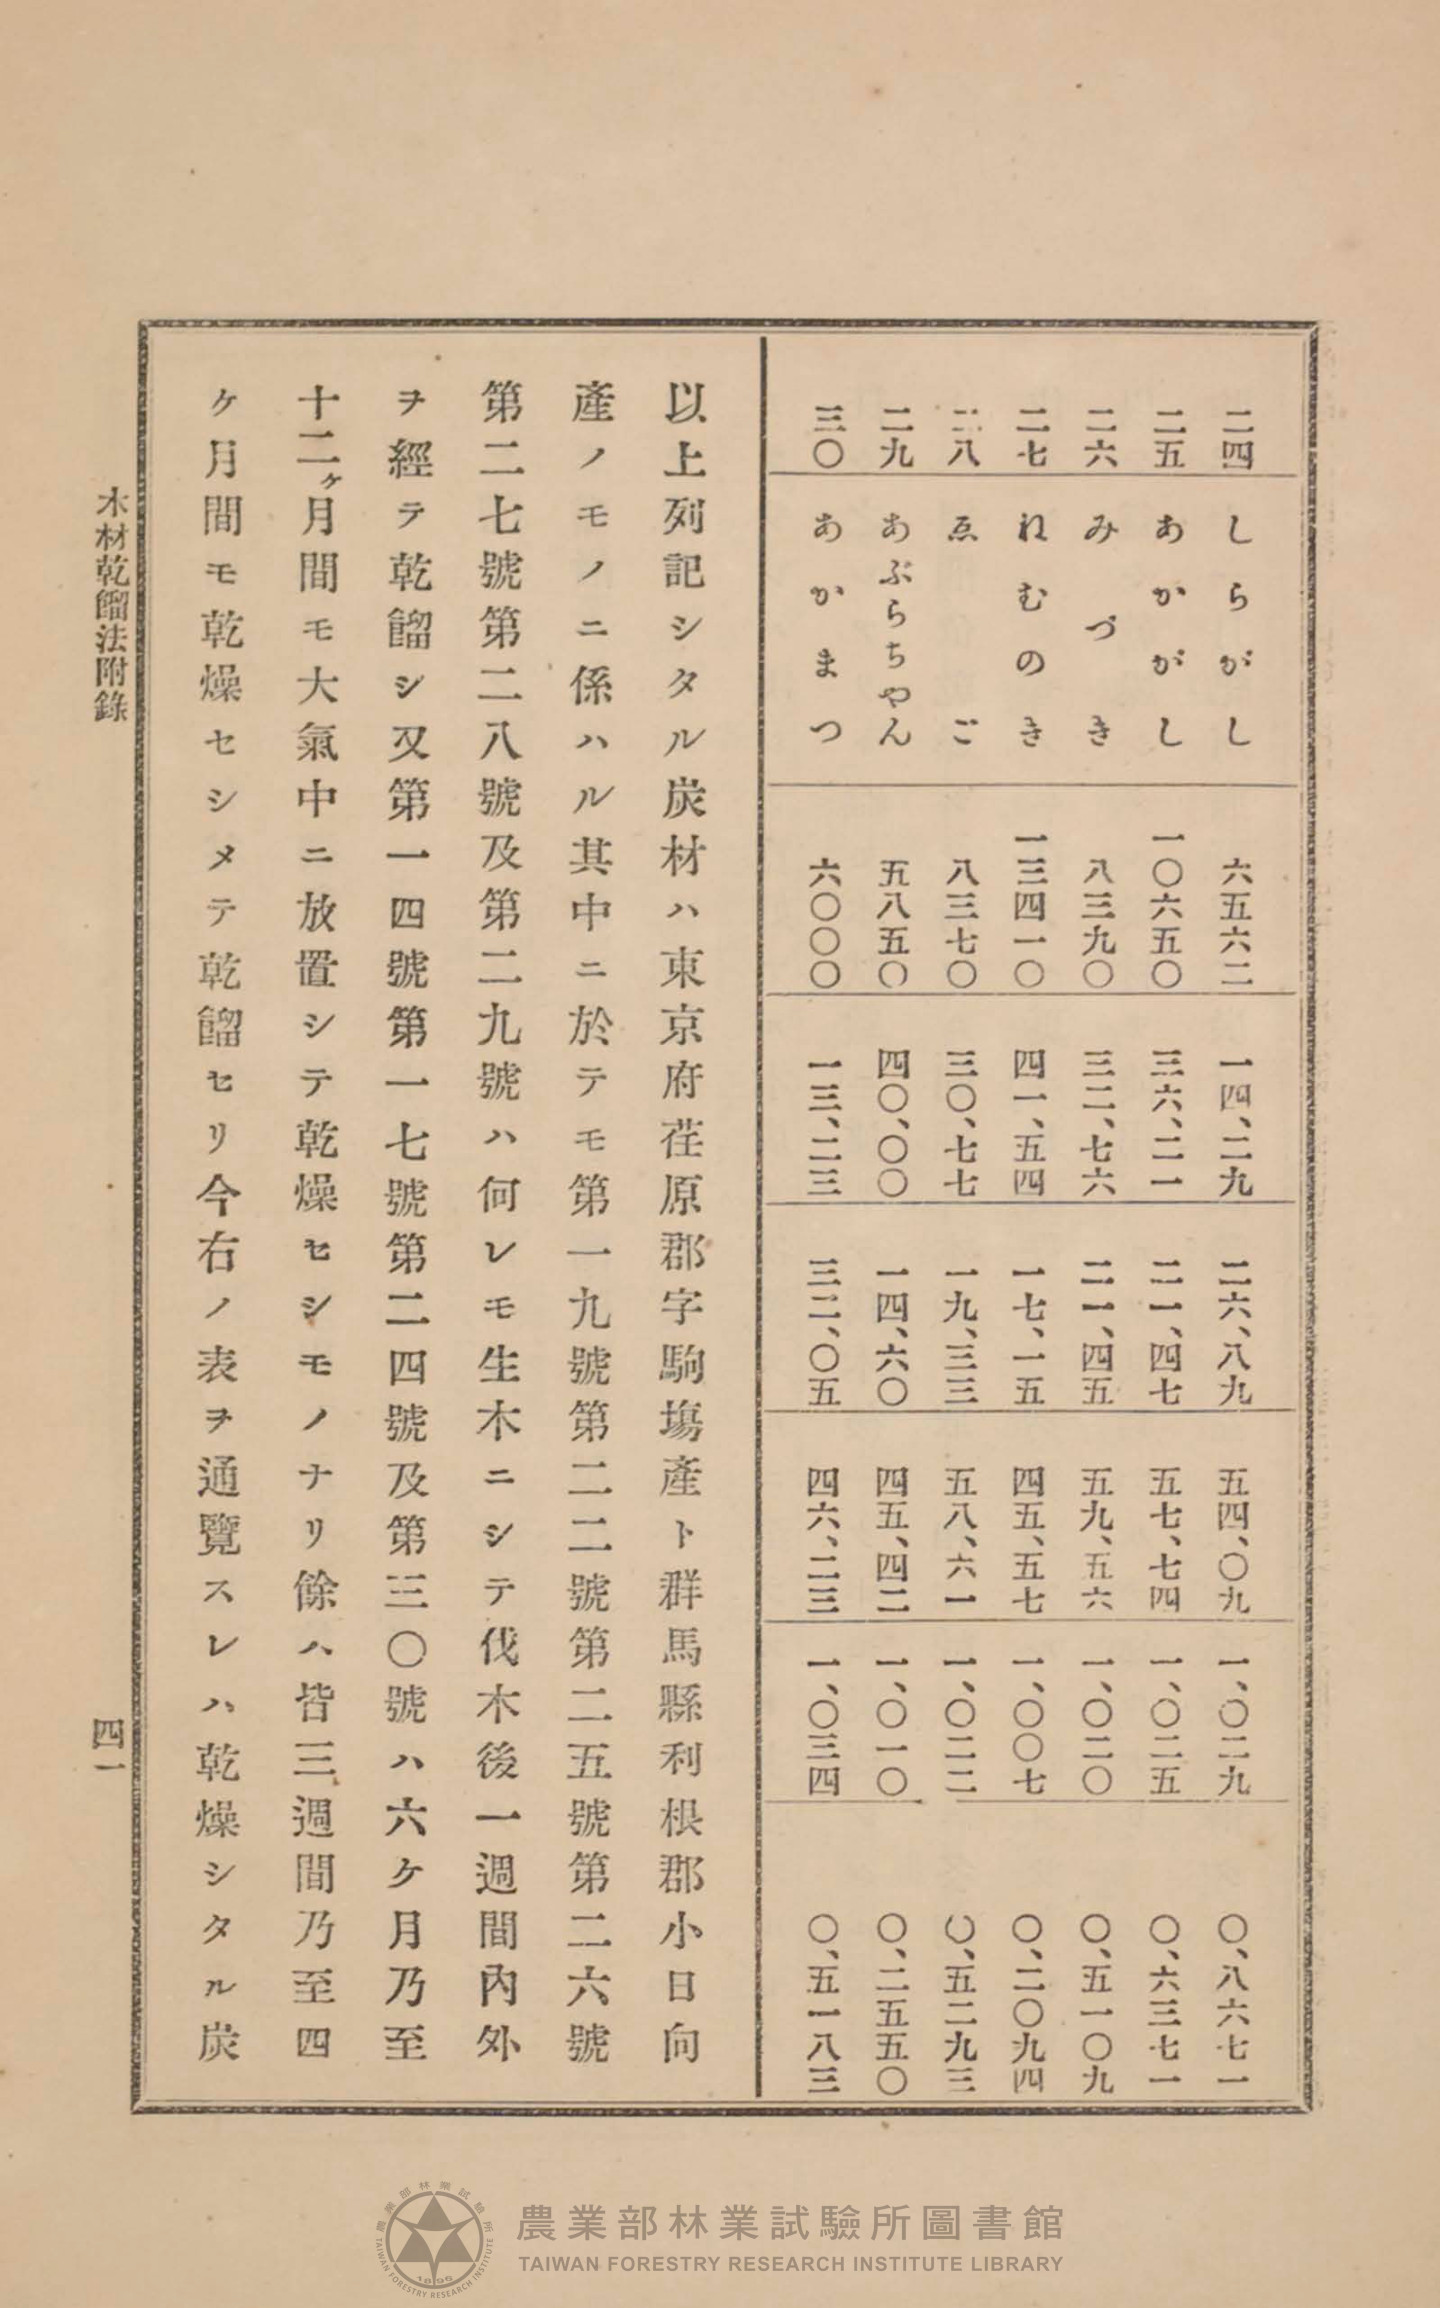 二四 しらがし 六五六二 一四、二九 二六、八九 五四、〇九 一、〇二九 〇、八六七一
二五 あかがし 一〇六五〇 三六、二一 二一、四七 五七、七四 一、〇二五 〇、六三七一
二六 みづき 八三九〇 三二、七六 二一、四五 五九、五六 一、〇二〇 〇、五一〇九
二七 ねむのき 一三四一〇 四一、五四 一七、一五 四五、五七 一、〇〇七 〇、二〇九四
二八 ゑご 八三七〇 三〇、七七 一九、三三 五八、六一 一、〇二二 〇、五二九三
二九 あぶらちやん 五八五〇 四〇、〇〇 一四、六〇 四五、四二 一、〇一〇 〇、二五五〇
三〇 あかまつ 六〇〇〇 一三、二三 三二、〇五 四六、二三 一、〇三四 〇、五一八三
以上列記シタル炭材ハ東京府荏原郡字駒塲產ト群馬縣利根郡小日向
產ノモノニ係ハル其中ニ於テモ第一九號第二二號第二五號第二六號
第二七號第二八號及第二九號ハ何レモ生木ニシテ伐木後一週間內外
ヲ經テ乾餾シ又第一四號第一七號第二四號及第三〇號ハ六ケ月乃至
十二ケ月間モ大氣中ニ放置シテ乾燥セシモノナリ餘ハ皆三週間乃至四
ケ月間モ乾燥セシメテ乾餾セリ今右ノ表ヲ通覽スレハ乾燥シタル炭
木材乾餾法附錄
四一
農業部林業試驗所圖書館
TAIWAN FORESTRY RESEARCH INSTITUTE LIBRARY
農業部林業試驗所
TAIWAN FORESTRY RESEARCH INSTITUTE
1896